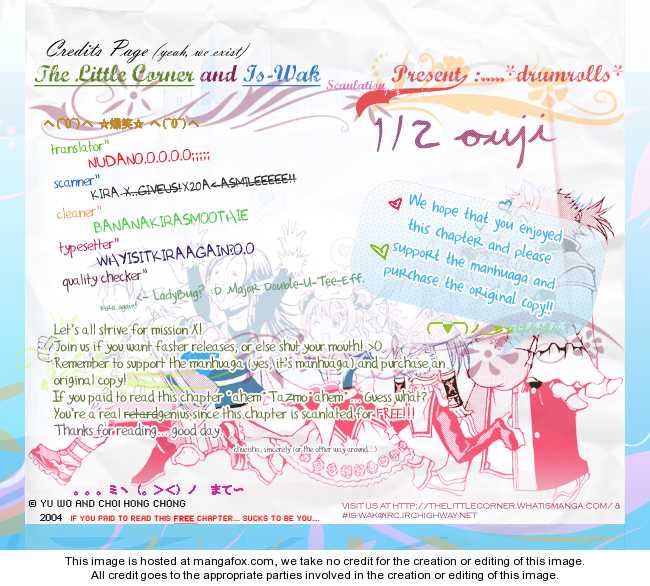 Credits Page (yeah, we exist)
The Little Corner and Is-Wak Scanlation Present, :.....*drumrolls*
ヘ(^o^)ヘ ☆爆笑☆ ヘ(^o^)ヘ
1/2 ouji
translator"
NUDANO.O.O.O.O;;;;;
scanner"
KIRA X..GIVEUS!X20A<ASMILEEEEE!!
cleaner"
BANANAKIRASMOOTHIE
typesetter"
WHYISITKIRAAGAIN?O.O
quality checker"
kira again! <- LadyBug? :D Major Double-U-Tee-Eff.
We hope that you enjoyed
this chapter and please
support the manhuaga and
purchase the original copy!!
Let's all strive for mission X!
Join us if you want faster releases, or else shut your mouth! >O
Remember to support the manhuaga (yes, it's manhuaga) and purchase an
original copy!
If you paid to read this chapter *ahem* Tazmo *ahem*... Guess what?
You're a real retardgenius since this chapter is scanlated for FREE!!!
Thanks for reading... good day.
。。。ミヽ（。＞＜）ノ まて～
© YU WO AND CHOI HONG CHONG
2004 IF YOU PAID TO READ THIS FREE CHAPTER... SUCKS TO BE YOU...
VISIT US AT HTTP://THELITTLECORNER.WHATISMANGA.COM/ &
#IS-WAK@IRC.IRCHIGHWAY.NET
This image is hosted at mangafox.com, we take no credit for the creation or editing of this image.
All credit goes to the appropriate parties involved in the creation or editing of this image.